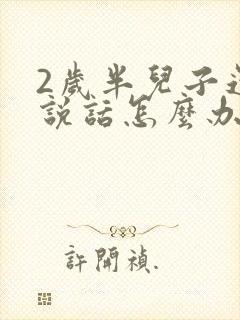 2歲半兒子
說話怎麼办
許開禎.